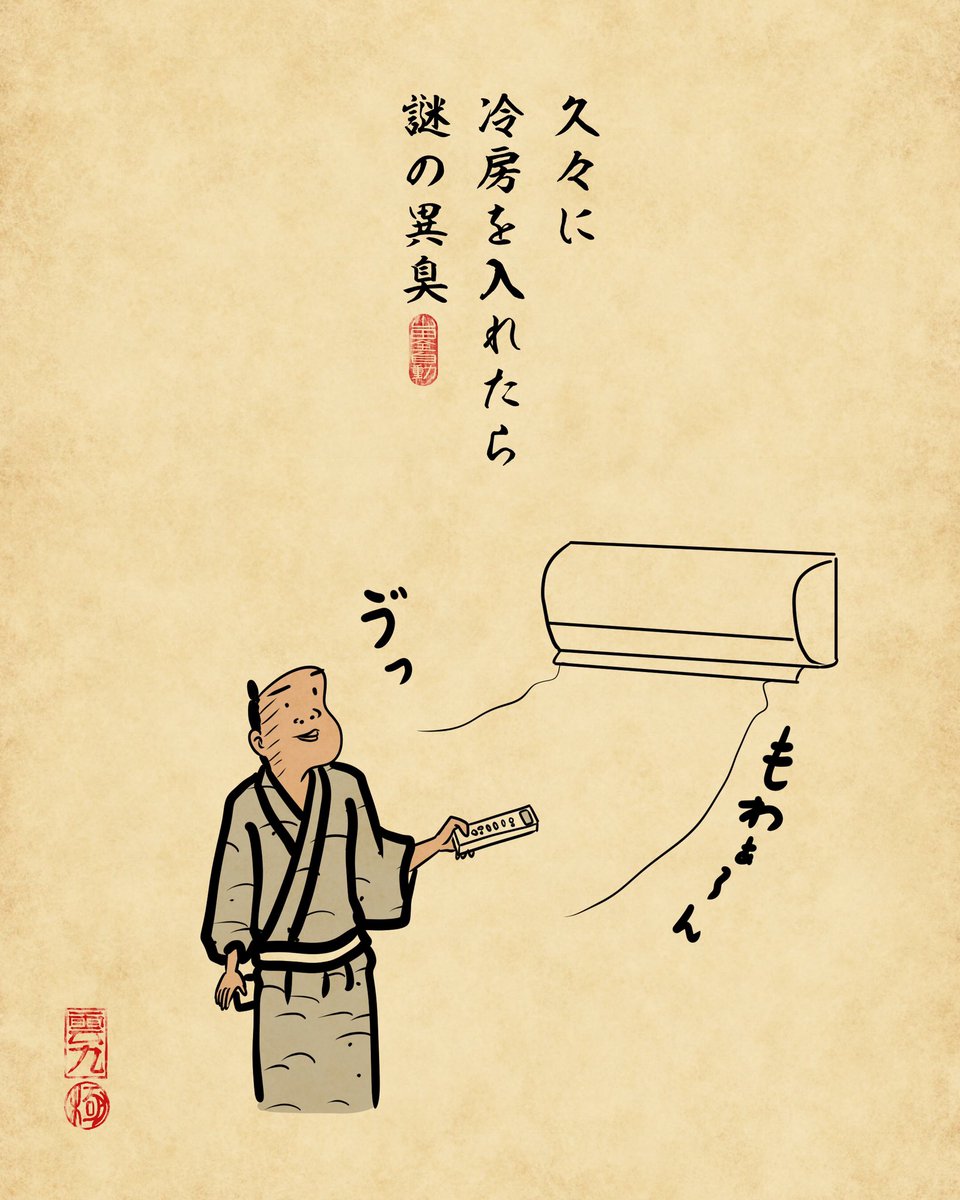 久々に
冷房を入れたら
謎の異臭
ゔっ
もわぁ〜ん